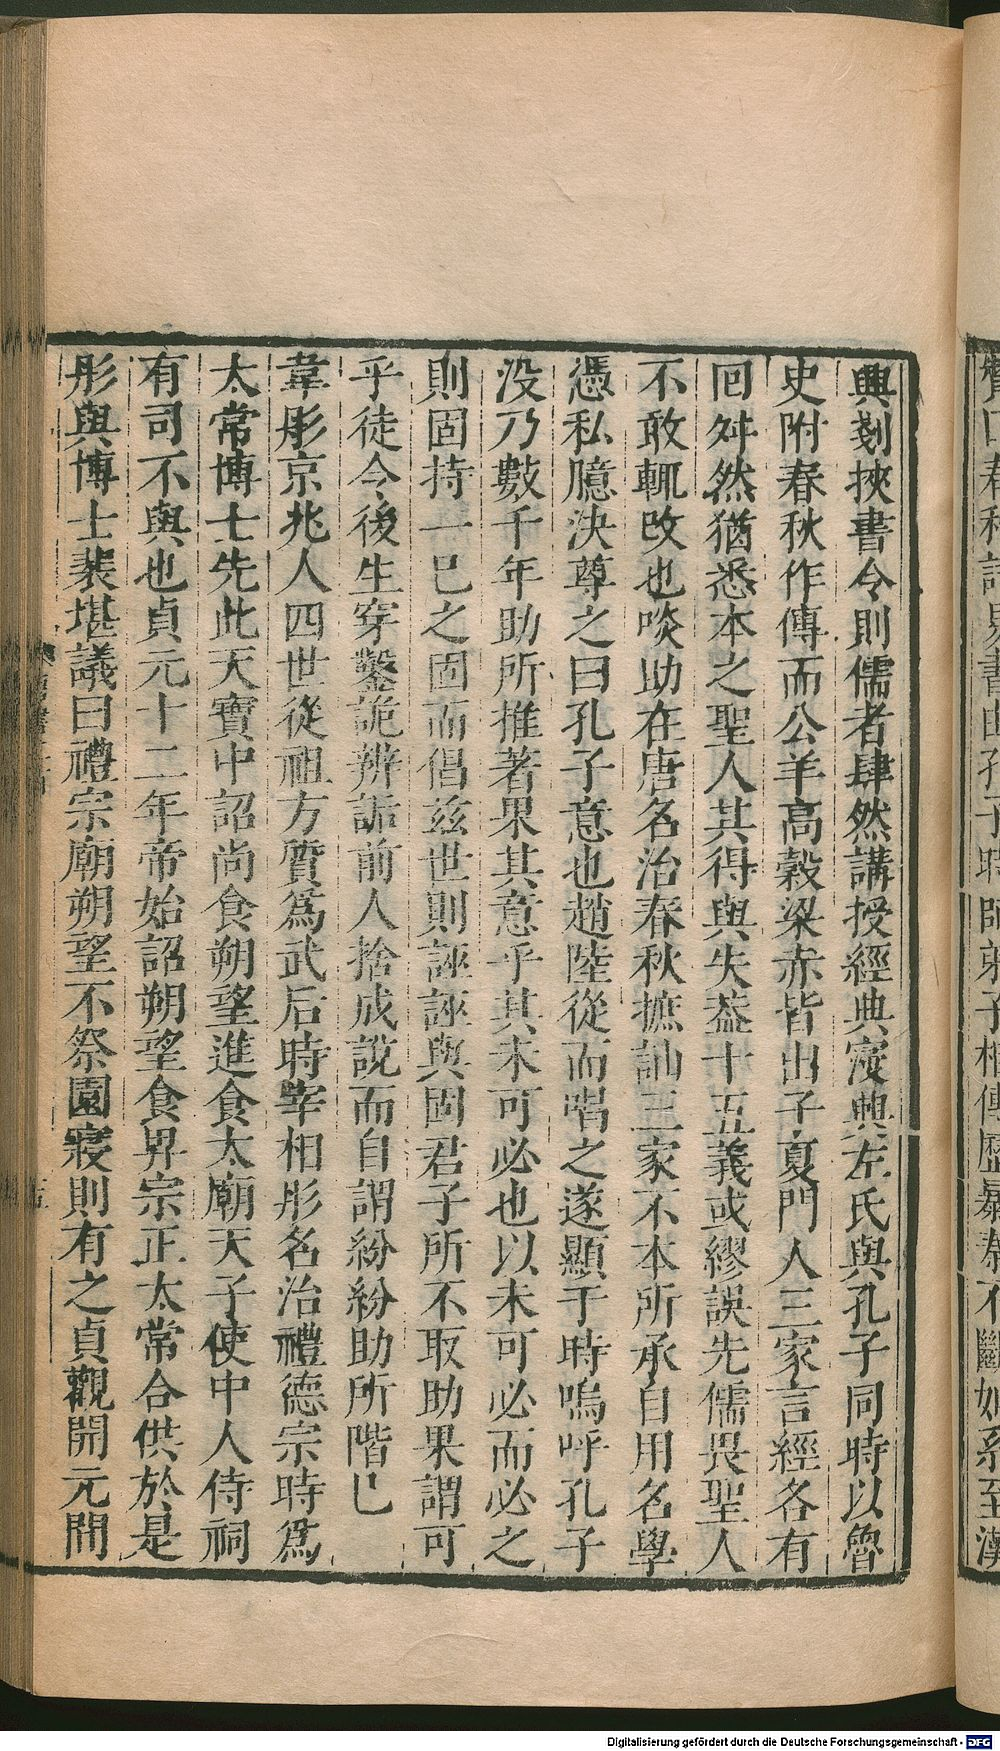 興剗挾書令則儒者肆然講授經典寖興左氏與孔子同時以魯
史附春秋作傳而公羊高穀梁赤皆出子夏門人三家言經各有
回舛然猶悉本之聖人其得與失葢十五義或繆誤先儒畏聖人
不敢輒改也啖助在唐名治春秋摭訕三家不本所承自用名學
憑私臆決尊之曰孔子意也趙陸從而唱之遂顯于時嗚呼孔子
没乃數千年助所推著果其意乎其未可必也以未可必而必之
則固持一己之固而倡兹世則誣誣與固君子所不取助果謂可
乎徒令後生穿鑿詭辨詬前人捨成說而自謂紛紛助所階已
韋彤京兆人四世從祖方質爲武后時宰相彤名治禮德宗時爲
太常博士先此天寶中詔尚食朔望進食太廟天子使中人侍祠
有司不與也貞元十二年帝始詔朔望食畀宗正太常合供於是
彤與博士裴堪議曰禮宗廟朔望不祭園寢則有之貞觀開元間
Digitalisierung gefördert durch die Deutsche Forschungsgemeinschaft - DFG